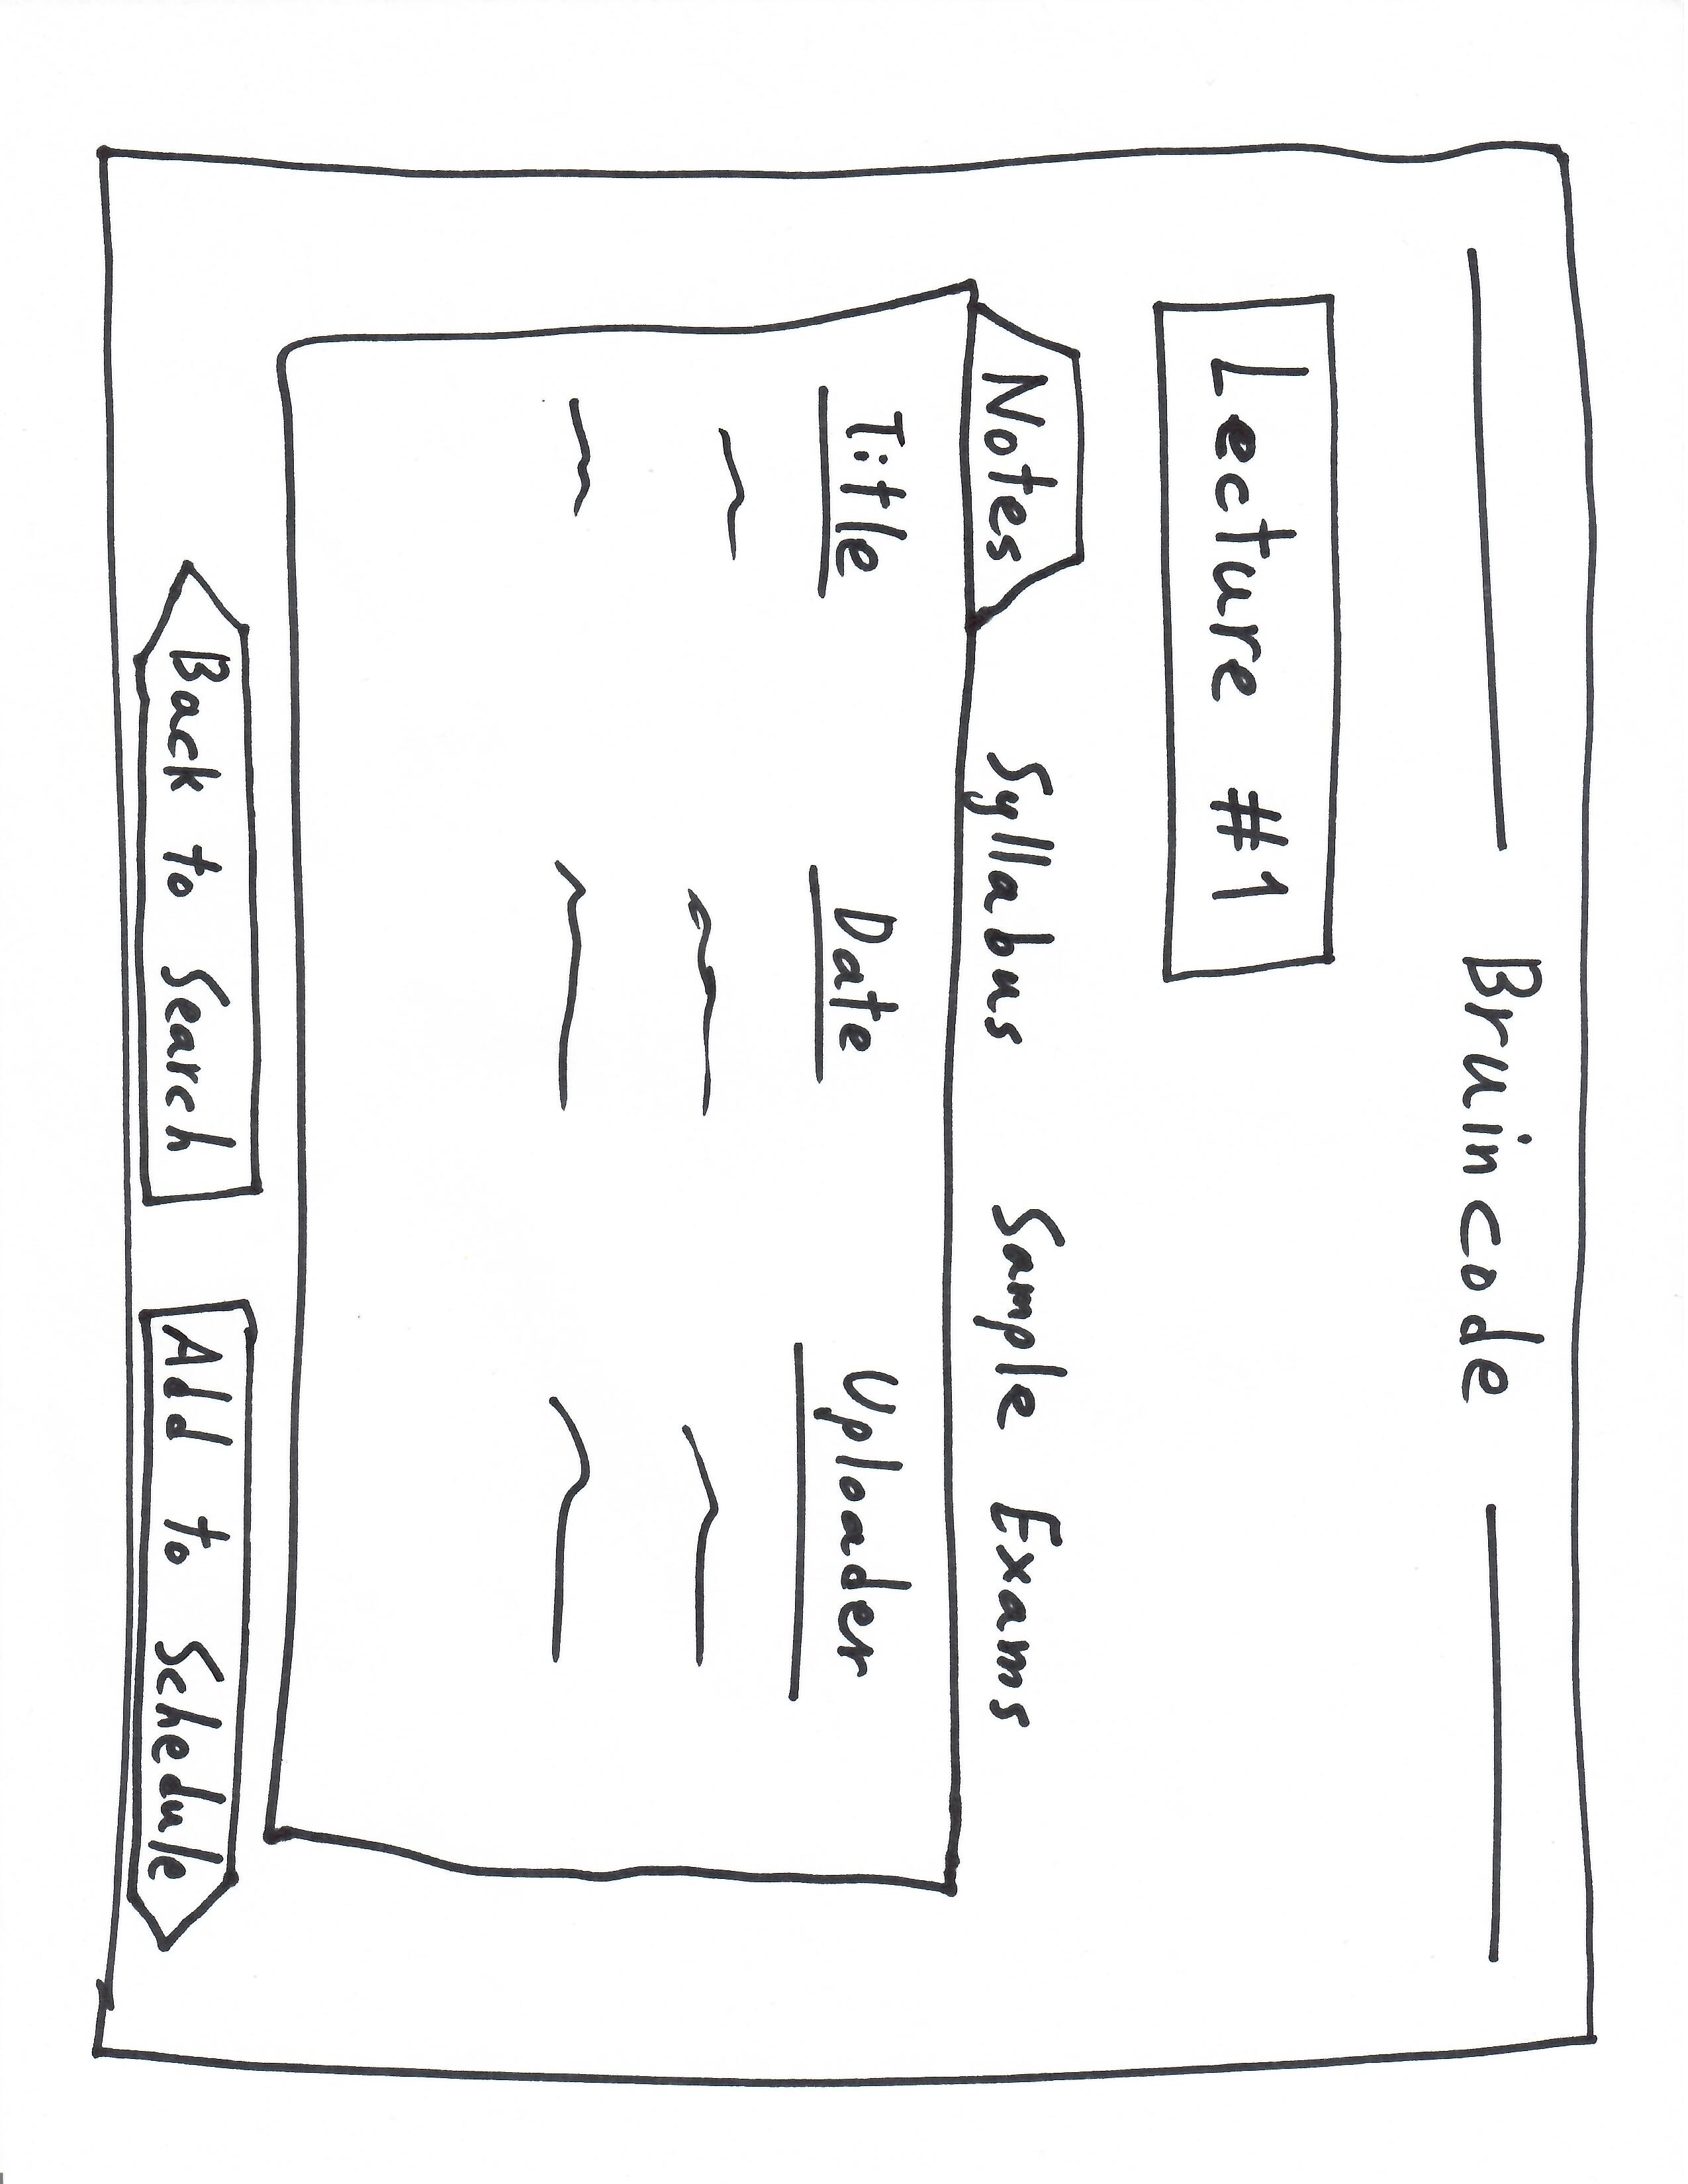 Bruincode
Lecture #1
Notes Syllabus Sample Exams
Title Date Uploader
Back to Search Add to Schedule